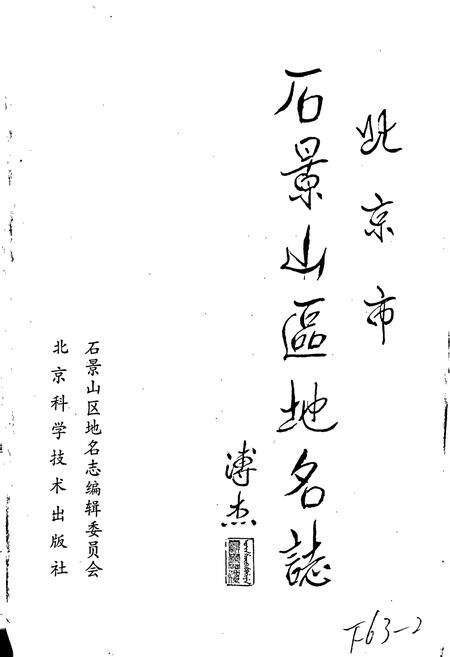 北京市
石景山區地名誌
溥杰
石景山区地名志编辑委员会
北京科学技术出版社